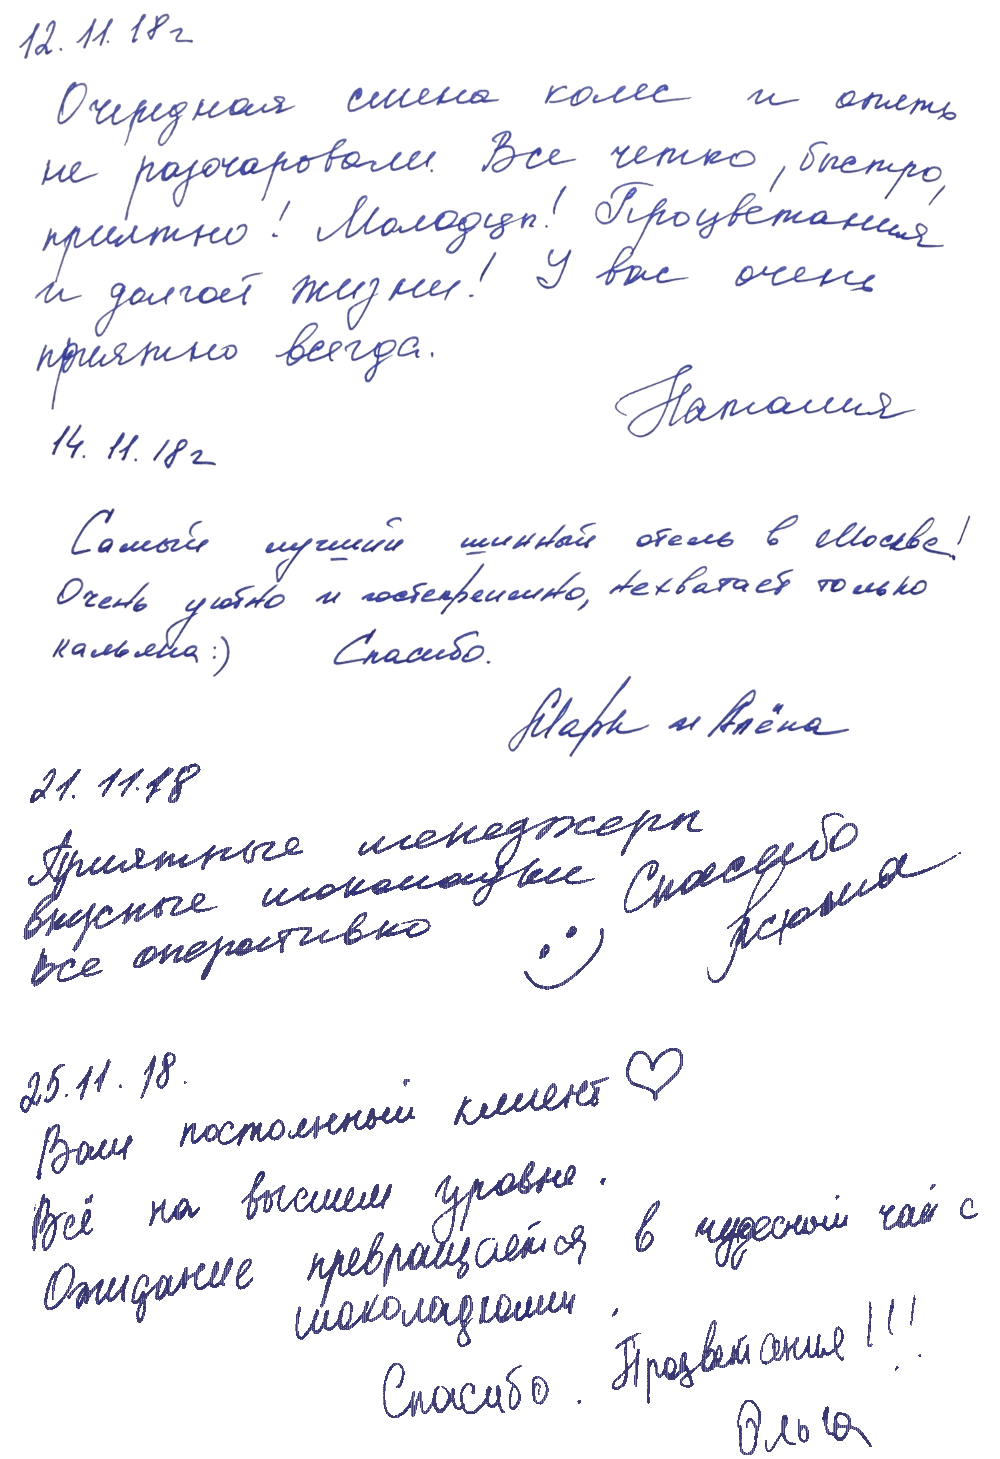 12.11.18г
Очередная смена колес и опять
не разочаровали. Все четко, быстро,
приятно! Молодцы! Процветания
и долгой жизни! У вас очень
приятно всегда.
Наталия
14.11.18г
Самый лучший шинный отель в Москве!
Очень уютно и гостеприимно, нехватает только
кальяна:) Спасибо.
Марк и Алёна
21.11.18
Приятные менеджеры
вкусные шоколадки Спасибо
все оперативно :) Ксюша
25.11.18.
Ваш постоянный клиент ♡
Всё на высшем уровне.
Ожидание превращается в чудесный чай с
шоколадками.
Спасибо. Процветания!!!
Ольга